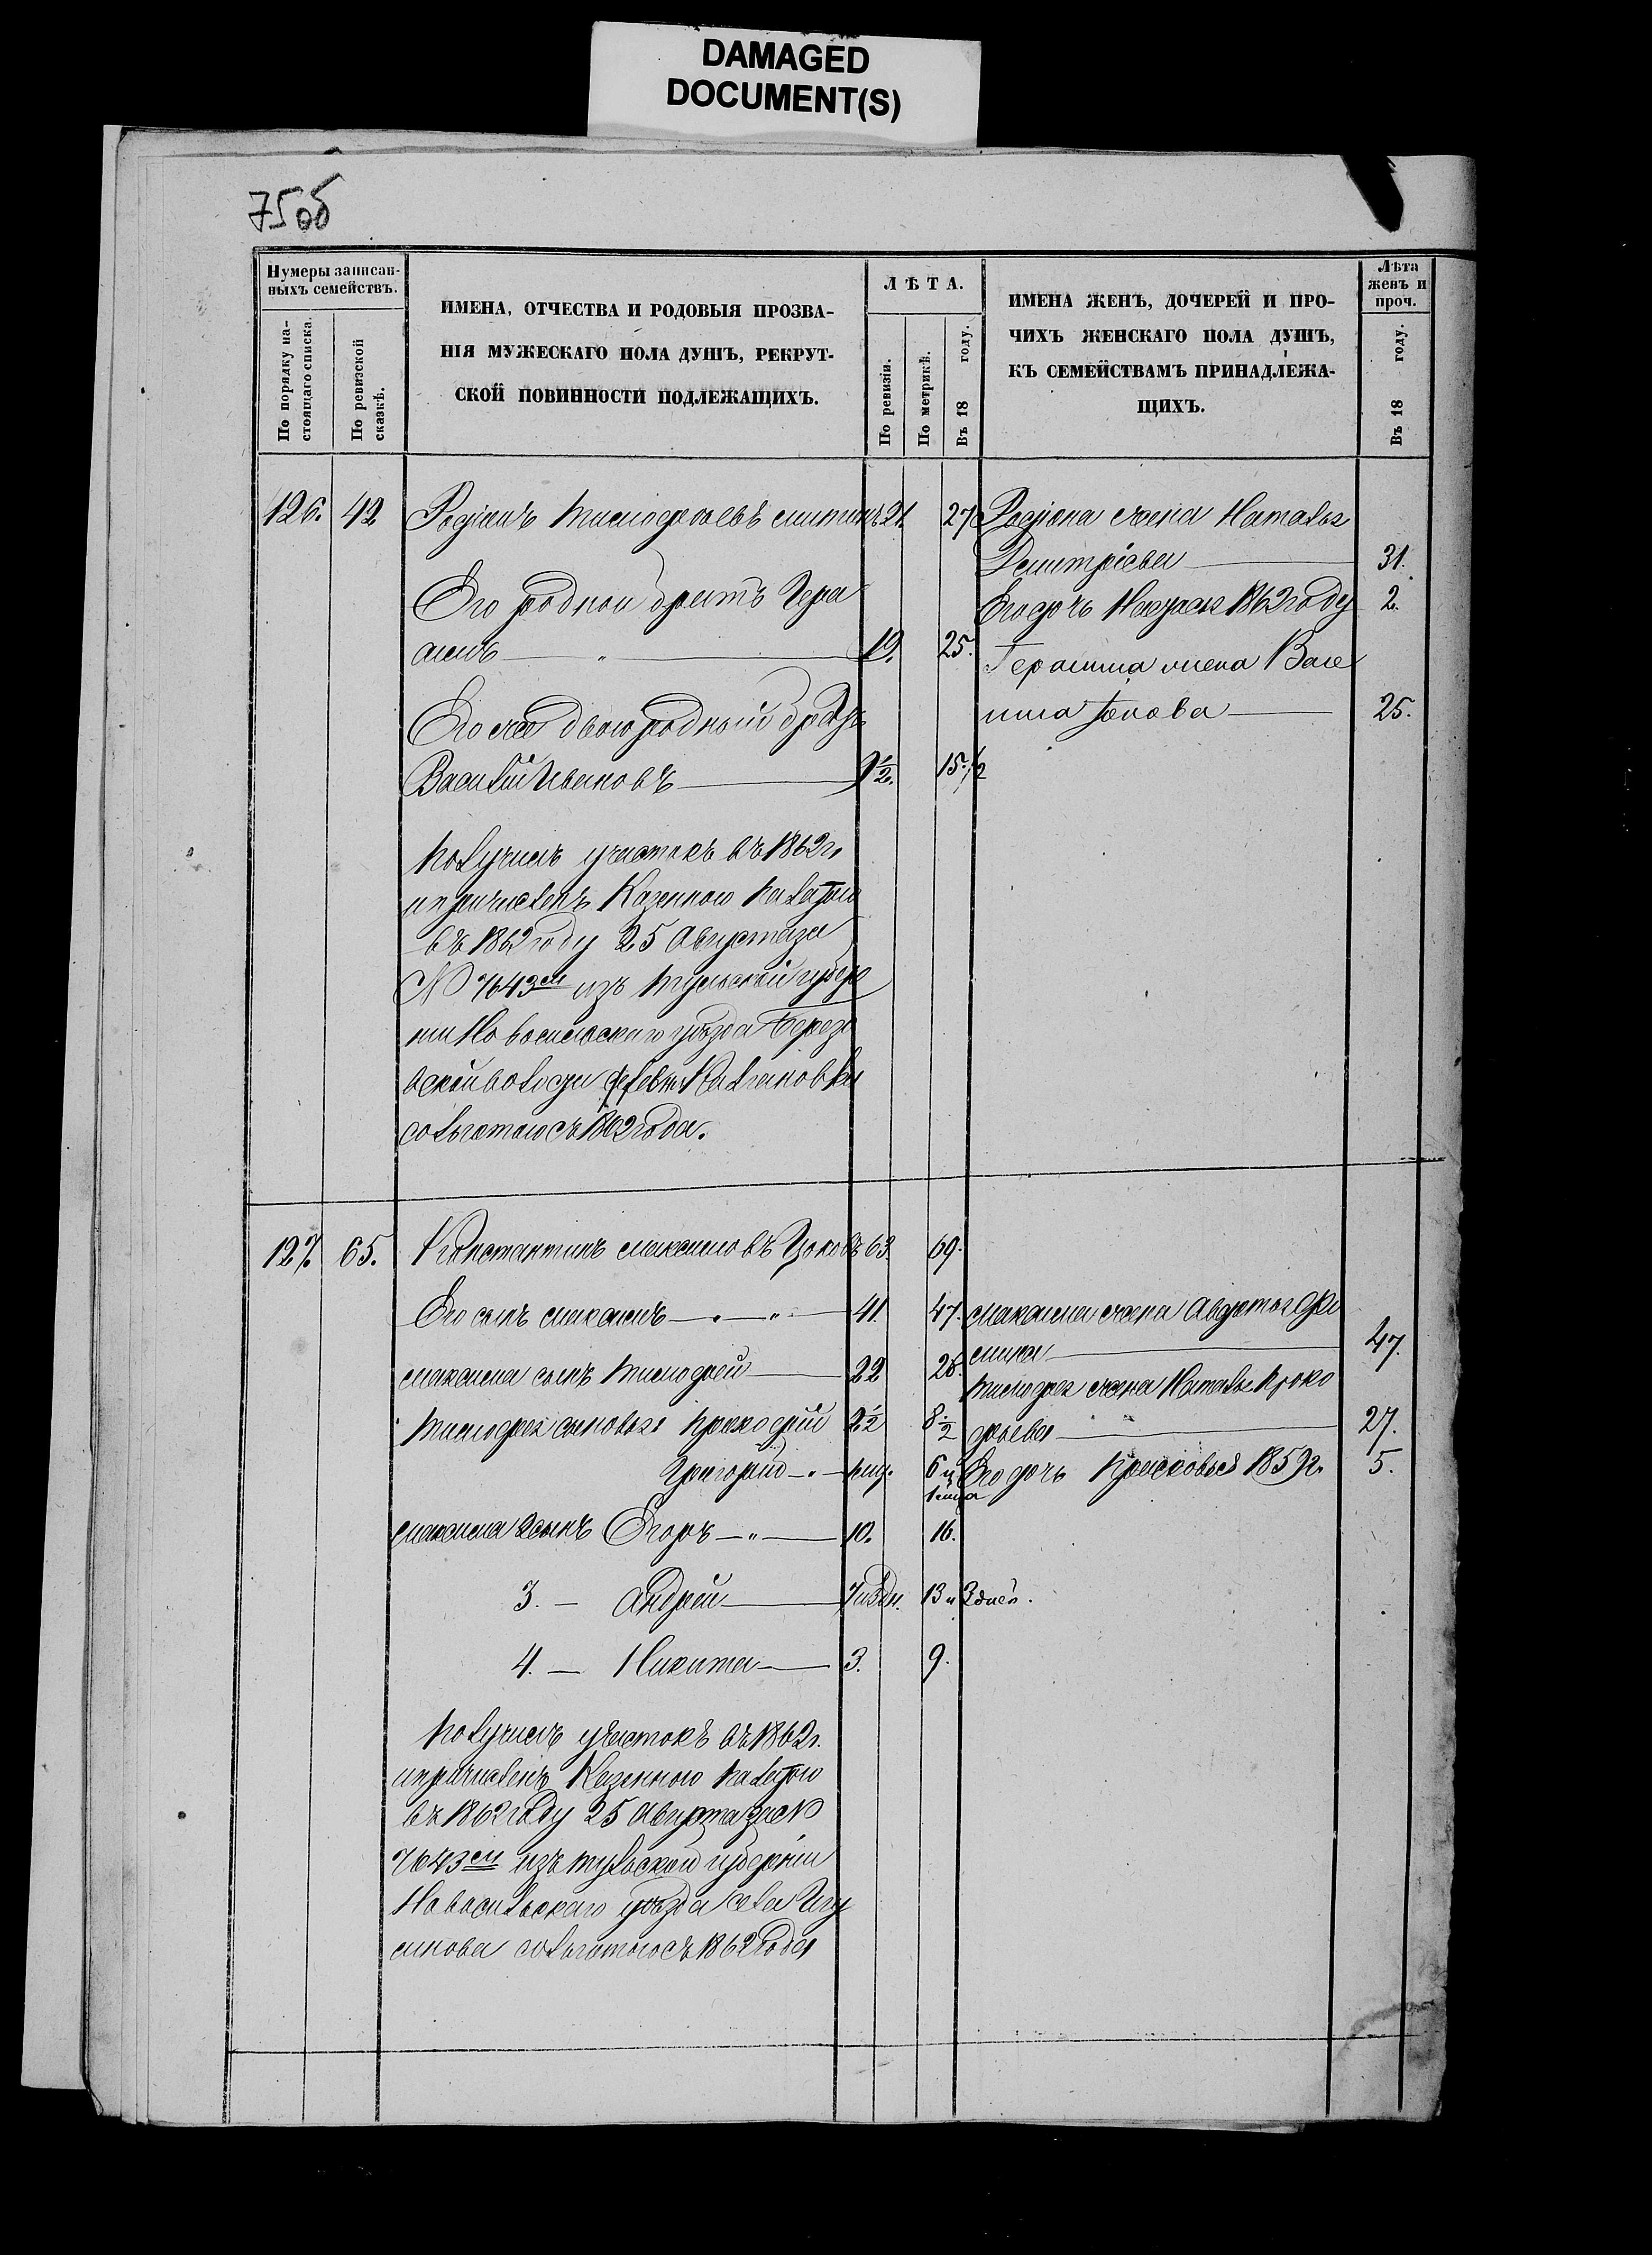 DAMAGED
DOCUMENT(S)
75об
Нумеры записан-
ныхъ семействъ.
По порядку на-
стоящаго списка.
По ревизской
сказкѣ.
ИМЕНА, ОТЧЕСТВА И РОДОВЫЯ ПРОЗВА-
НІЯ МУЖЕСКАГО ПОЛА ДУШЪ, РЕКРУТ-
СКОЙ ПОВИННОСТИ ПОДЛЕЖАЩИХЪ.
ЛѢТА.
По ревизіи.
По метрикѣ.
Въ 18 году.
ИМЕНА ЖЕНЪ, ДОЧЕРЕЙ И ПРО-
ЧИХЪ ЖЕНСКАГО ПОЛА ДУШЪ,
КЪ СЕМЕЙСТВАМЪ ПРИНАДЛЕЖА-
ЩИХЪ.
Лѣта
женъ и
проч.
Въ 18 году.
126. 42 Родіонъ Тимофеевъ 21. 27 Родіона жена Наталья
Дмитріева 31.
Его родной братъ Гера
симъ 19. 25.
Его дочь 1862 году 2.
Герасима жена Васе
нова 25.
Его же двоюродный братъ
Василій Ивановъ 9½. 15½
Получилъ участокъ въ 1862 г.
и причисленъ Казенною Палатою
въ 1862 году 25 Августа за
№ 7643м изъ Тульской губер
ніи Новосильскаго уѣзда Берез
вской волости
со льготою съ 1862 года.
127. 65. Константинъ Максимовъ 63. 69.
Его сынъ Максимъ 41. 47. Максима жена Авдотья Фо
мина 47.
Максима сынъ Тимофей 22 28. Тимофея жена Наталья Проко
фьева 27.
Тимофея сыновья Прокофій 2½ 8½
Григорій 6 и Его дочь Прасковья 1859 г. 5.
Максима 2 сынъ Егоръ 10. 16.
3. — Андрей 7 и 3 дн. 13 и 3 дней.
4. — Никита 3. 9.
Получилъ участокъ въ 1862 г.
и причисленъ Казенною Палатою
въ 1862 году 25 Августа за №
7643м изъ Тульской губерніи
Новосильскаго уѣзда села Игу
мнова со льготою съ 1862 года